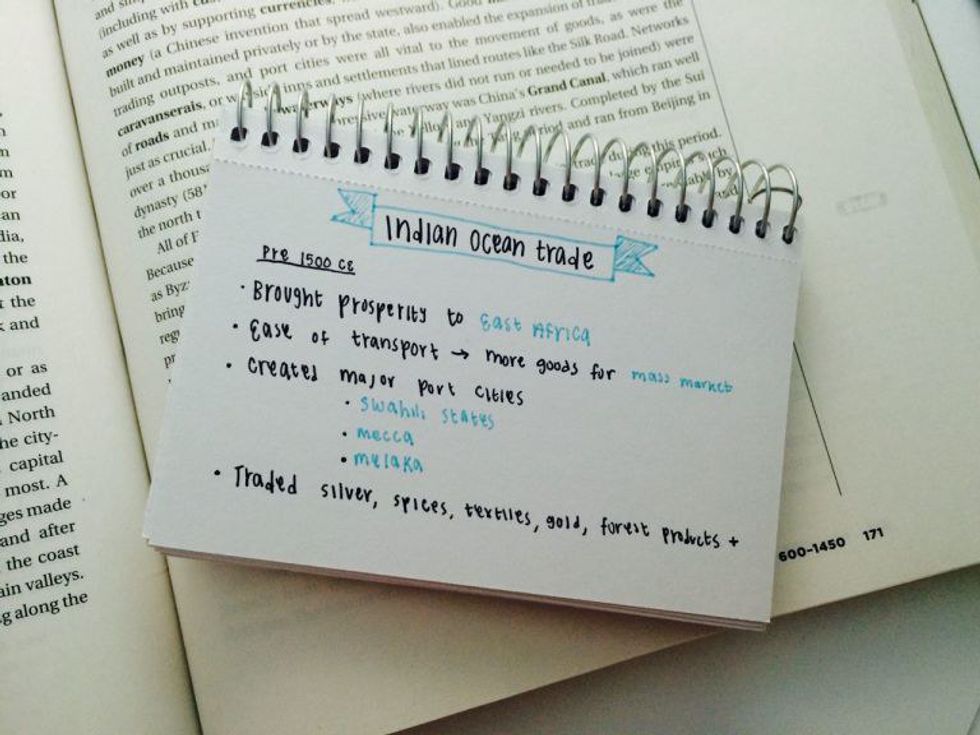 and sin
(including with cus
as well as by supporting currencies,
money (a Chinese invention that spread westward). Good
built and maintained privately or by the state, also enabled the expansion of tra
trading outposts, and port cities were all vital to the movement of goods, as were the
caravanserais, or inns and settlements that lined routes like the Silk Road. Networks
of roads and waterways (where rivers did not run or needed to be joined) were
just as crucial. pressive waterway was China's Grand Canal, which ran well
over a thousa Yangzi rivers. Completed by the Sui
dynasty (58 period and ran from Beijing in
the north t
All of trade during this period.
Because
as Byz
bring
reg
pr
and
Indian Ocean trade
Pre 1500 CE
· Brought prosperity to East Africa
· Ease of transport → more goods for mass market
· Created major port cities
· Swahili States
· mecca
· melaka
· Traded silver, spices, textiles, gold, forest products +
600-1450 171
m
or
an
dia,
the
ton
the
and
or as
anded
North
he city-
capital
most. A
ges made
and after
the coast
ain valleys.
g along the